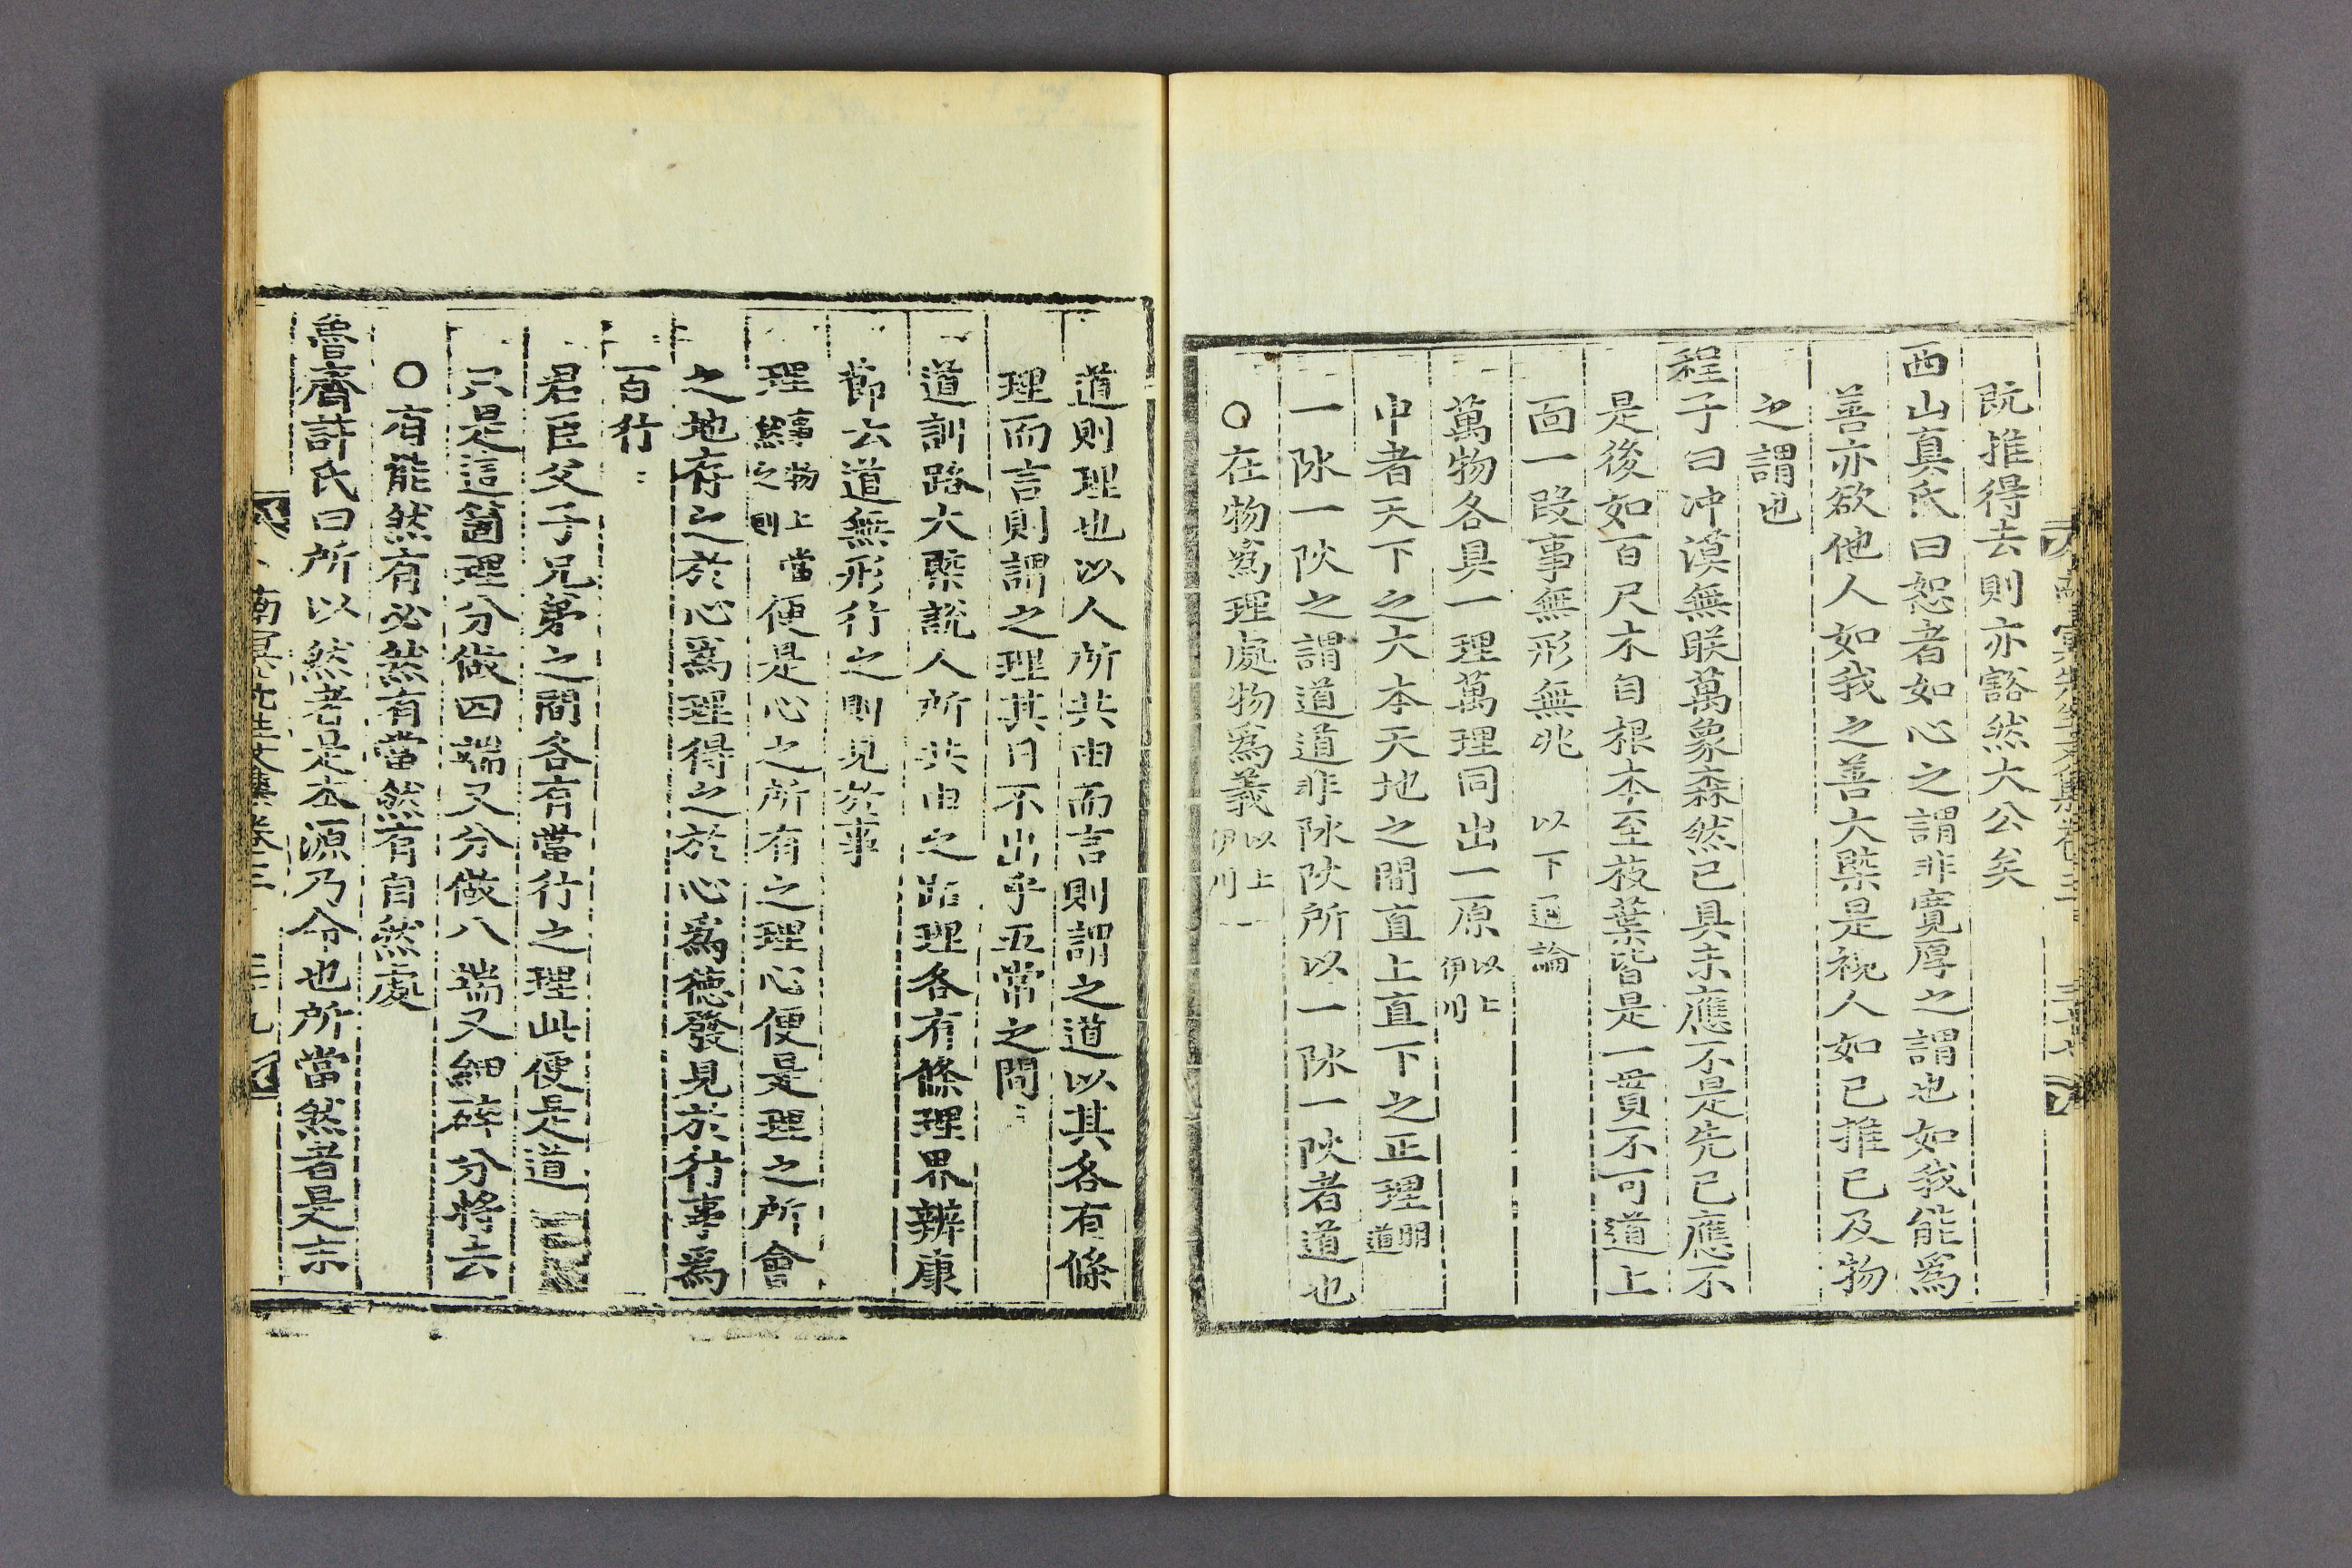 既推得去則亦豁然大公矣
西山真氏曰恕者如心之謂非寬厚之謂也如我能爲
善亦欲他人如我之善大槩是視人如己推己及物
之謂也
程子曰冲漠無眹萬象森然已具未應不是先已應不
是後如百尺木自根本至枝葉皆是一貫不可道上
面一段事無形無兆 以下通論
萬物各具一理萬理同出一原 以上伊川
中者天下之大本天地之間直上直下之正理 明道
一阥一阦之謂道道非阥阦所以一阥一阦者道也
○在物爲理處物爲義 以上伊川
道則理也以人所共由而言則謂之道以其各有條
理而言則謂之理其目不出乎五常之間
道訓路大槩說人所共由之路理各有條理界辨康
節云道無形行之則見於事
理 事物上當然之則 便是心之所有之理心便是理之所會
之地存之於心爲理得之於心爲德發見於行事爲
百行
君臣父子兄弟之間各有當行之理此便是道
只是這箇理分做四端又分做八端又細碎分將去
○有能然有必然有當然有自然處
魯齋許氏曰所以然者是本源乃命也所當然者是末
南冥先生文集卷三 三十九